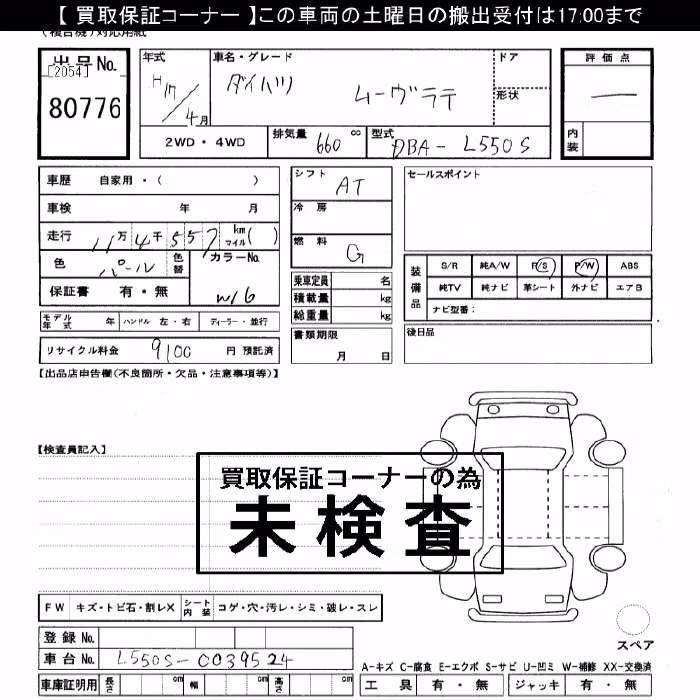 【 買取保証コーナー 】この車両の土曜日の搬出受付は17:00まで
(複合機)対応用紙
出品No.
[2054]
80776
年式 H17/4月
車名・グレード ダイハツ ムーヴラテ
ドア
形状
評価点 —
内装
2WD・4WD
排気量 660 cc
型式 DBA-L550S
車歴 自家用・( )
車検 年 月
走行 11万4千557 km マイル( )
色 パール 色替 カラーNo. W16
保証書 有・無
シフト AT
冷房
燃料 G
乗車定員 名
積載量 kg
総重量 kg
セールスポイント
装備品 S/R 純A/W P/S P/W ABS
純TV 純ナビ 革シート 外ナビ エアB
ナビ型番:
モデル年式 年 ハンドル 左・右 ディーラー・並行
書類期限 月 日
後日品
リサイクル料金 9100 円 預託済
【出品店申告欄(不良箇所・欠品・注意事項等)】
【検査員記入】
買取保証コーナーの為
未検査
FW キズ・トビ石・割レX シート内装 コゲ・穴・汚レ・シミ・破レ・スレ
登録No.
車台No. L550S-0039524
スペア
A-キズ C-腐食 E-エクボ S-サビ U-凹ミ W-補修 XX-交換済
車庫証明用 長さ cm 幅 cm 高さ cm
工具 有・無 ジャッキ 有・無